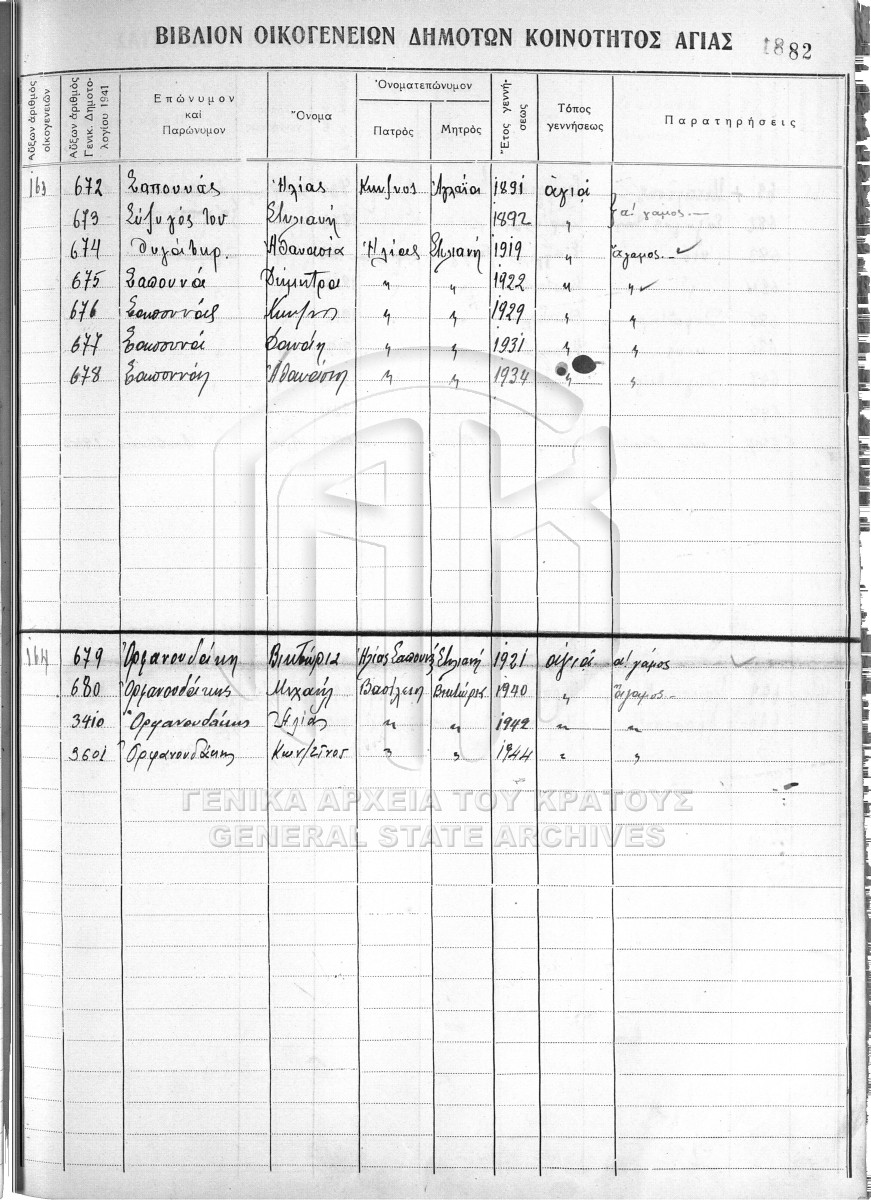 ΒΙΒΛΙΟΝ ΟΙΚΟΓΕΝΕΙΩΝ ΔΗΜΟΤΩΝ ΚΟΙΝΟΤΗΤΟΣ ΑΓΙΑΣ 82
Αὔξων ἀριθμὸς οἰκογενειῶν
Αὔξων ἀριθμὸς Γενικ. Δημοτολογίου 1941
Ἐπώνυμον καὶ Παρώνυμον
Ὄνομα
Ὀνοματεπώνυμον
Πατρὸς
Μητρὸς
Ἔτος γεννήσεως
Τόπος γεννήσεως
Παρατηρήσεις
163 672 Σαπουνάς Ἠλίας Κων/νος Ἀγλαΐα 1891 ἁγιά
673 Σύζυγός του Στυλιανή 1892 〃 α' γάμος
674 θυγάτηρ Ἀθανασία Ἠλίας Στυλιανή 1919 〃 ἄγαμος
675 Σαπουνά Δήμητρα 〃 〃 1922 〃 〃
676 Σαπουνάς Κων/νος 〃 〃 1929 〃 〃
677 Σαπουνά 〃 〃 1931 〃 〃
678 〃 〃 1934 〃 〃
164 679 Ὀρφανουδάκη Βικτώρια Ἠλίας Σαπουνάς Στυλιανή 1921 ἁγιά α' γάμος
680 Ὀρφανουδάκης Μιχαήλ Βασίλειος Βικτώρια 1940 〃 ἄγαμος
3410 Ὀρφανουδάκης Ἠλίας 〃 〃 1942 〃 〃
3601 Ὀρφανουδάκης Κων/τῖνος 〃 〃 1944 〃 〃
ΓΕΝΙΚΑ ΑΡΧΕΙΑ ΤΟΥ ΚΡΑΤΟΥΣ
GENERAL STATE ARCHIVES